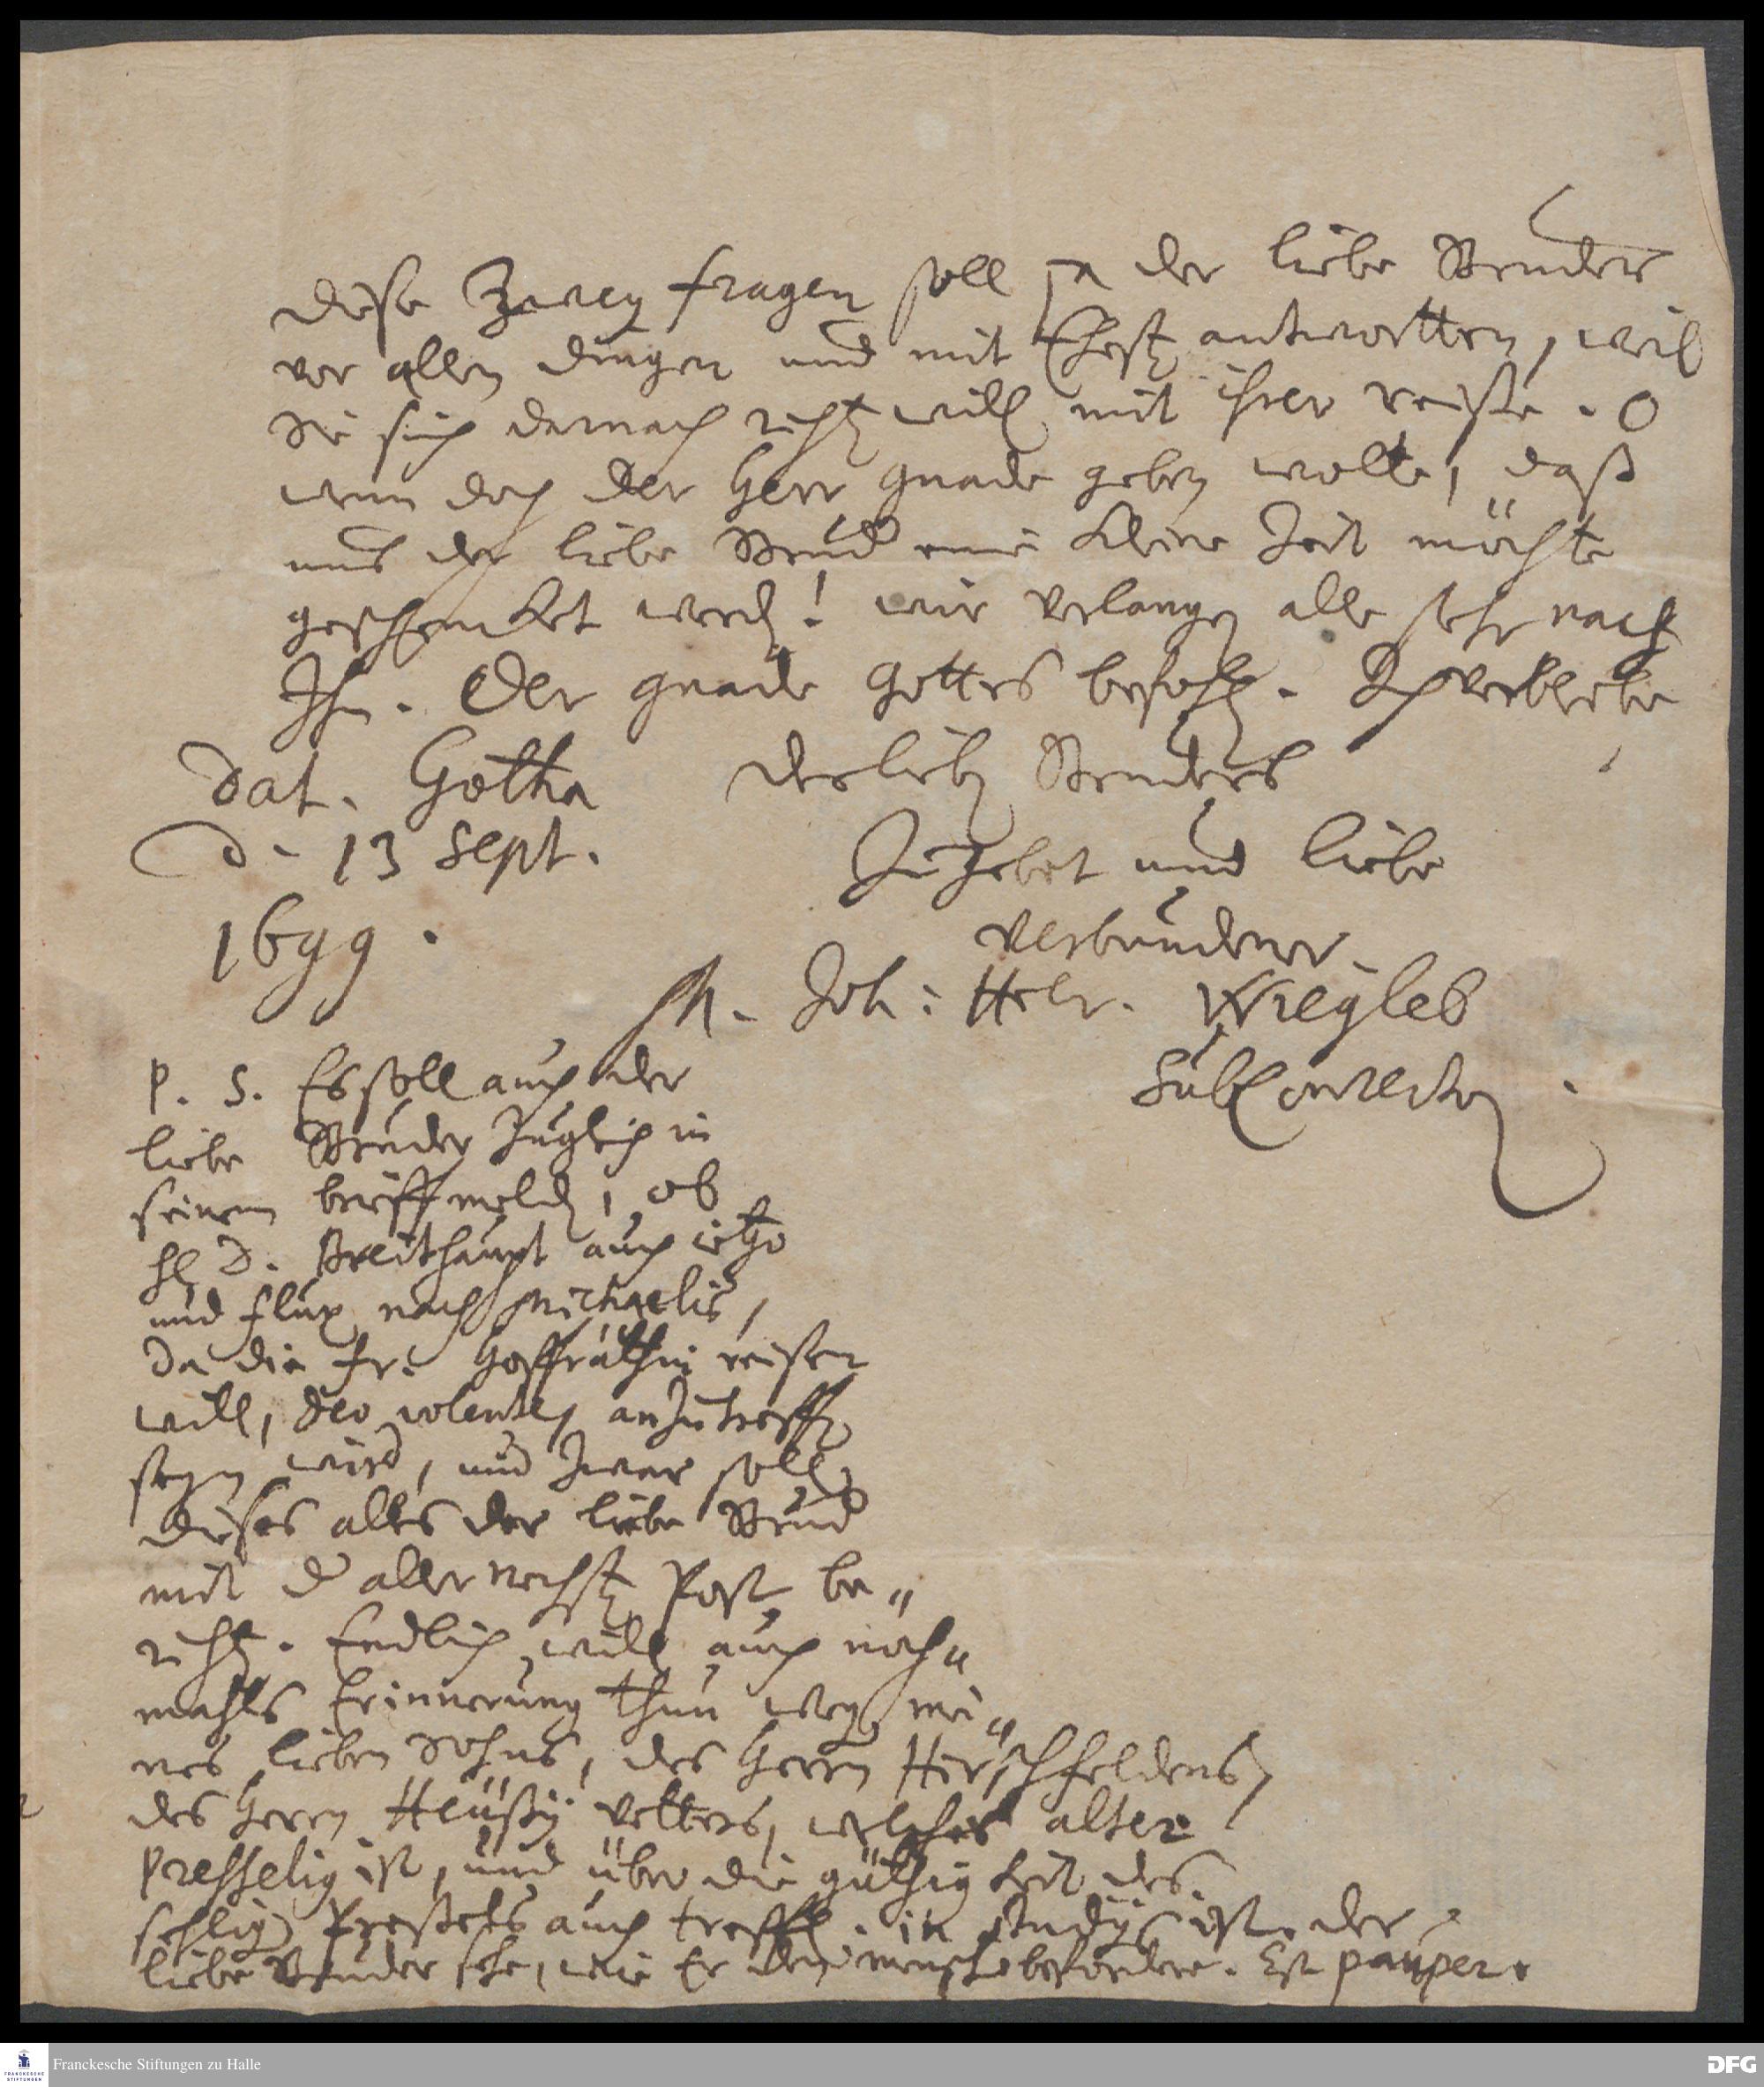 diese zwey fragen soll ja der liebe Bruder
vor allen dingen und mit Ehest antwortten, weil
sie sich darnach richt will mit ihrer reiße. O
wenn doch der Herr gnade geben wolte, daß
uns der liebe Brud eine kleine Zeit möchte
geschencket werd! wir verlangen alle sehr nach
Ihm. Der gnade Gottes befohl. Ich verbleibe
Dat. Gotha des lieb Bruders
d. 13 Sept. Zu gebet und liebe
1699. verbundener
M. Joh: Heinr. Wiegleb
SubConrector.
P. S. Es soll auch der
liebe Bruder zugleich in
seinem brieff meld, ob
H D. Breithaupt auch itzo
und flux nach Michaelis,
da die Fr. Hoffräthin reisen
will, deo volente, anzutreff
seyn wird, und zwar soll
dieses alles der liebe Brud
mit d allernechst Post be„
richt. Endlich will auch noch„
mahls Erinnerung thun weg mei„
nes lieben Sohns, des Herrn Hirschfeldens,
des Herrn Vetters, welcher alter
Presselig ist, und über die güthigkeit des
sehlig auch treffl. in studijs ist. der
liebe Bruder sehe, wie Er den mensch befördere. Est pauper.
Franckesche Stiftungen zu Halle
FRANCKESCHE
STIFTUNGEN
DFG